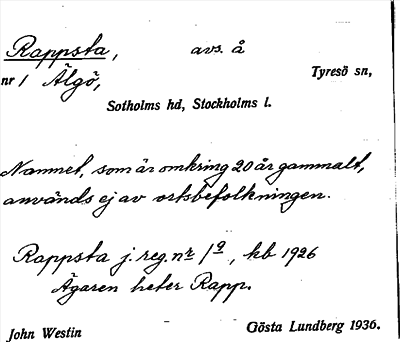 Rappsta, avs. å
nr 1 Älgö, Tyresö sn,
Sotholms hd, Stockholms l.
Namnet, som är omkring 20 år gammalt,
används ej av ortsbefolkningen.
Rappsta j. reg. nr 1⁹, kb 1926
Ägaren heter Rapp.
John Westin Gösta Lundberg 1936.